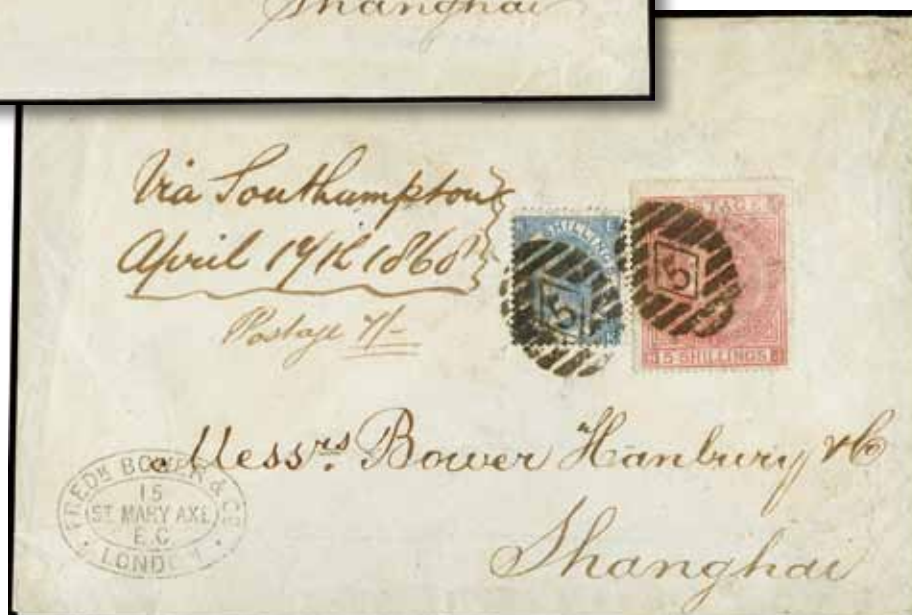 Shanghai
Via Southampton
April 17th 1868
Postage 7/-
SHILLINGS
5
POSTAGE
5
5 SHILLINGS
Messrs. Bower Hanbury & Co
Shanghai
FREDK BOWER & CO
15
ST MARY AXE
E.C
LONDON